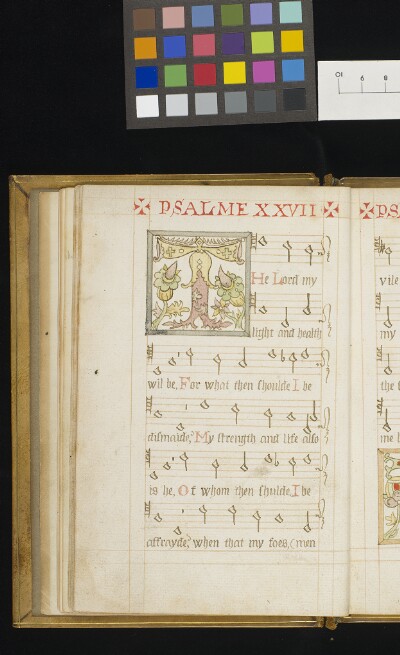 ✠ PSALME XXVII ✠
THe Lord my
light and health
wil be, For what then shoulde I be
dismaide, My strength and life also
is he, Of whom then shulde I be
affrayde, when that my foes, (men
✠ PS
vile
my
the
me
10 9 8